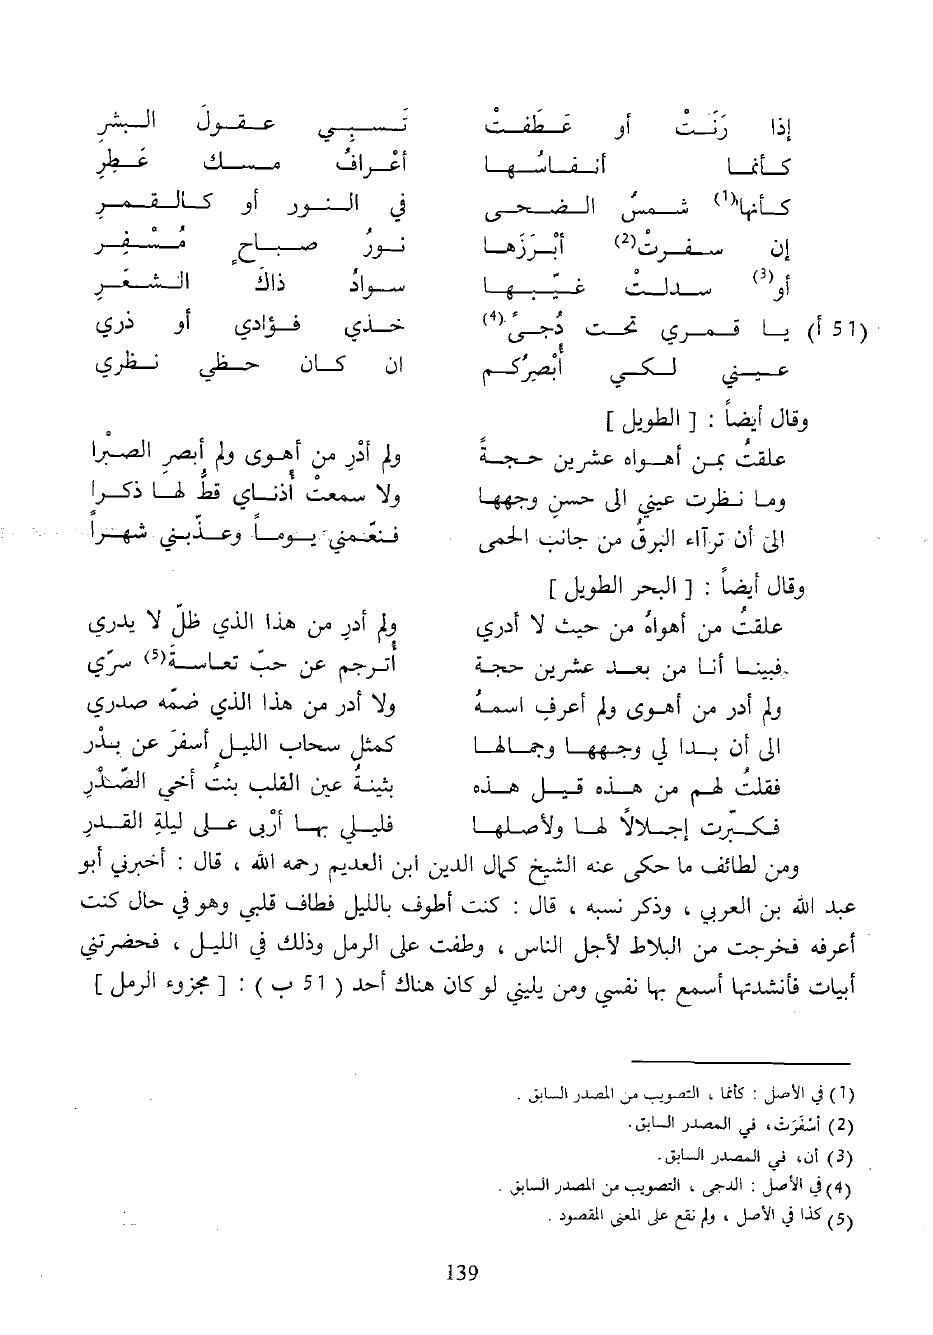 إذا رَنَتْ أو عَطَفَتْ تَسْبي عقولَ البشرِ
كأنما أنفاسُها أعْرافُ مسك عَطِرِ
كأنها(1) شمسُ الضحى في النور أو كالقمرِ
إن سفرتْ(2) أبْرَزَها نورُ صباحٍ مُسْفِرِ
أو(3) سدلتْ غيّبها سوادُ ذاكَ الشعَرِ
(51 أ) يا قمري تحت دُجىً(4) خذي فؤادي أو ذري
عيني لكي أُبْصِرُكم ان كان حظي نظري
وقال أيضاً : [ الطويل ]
علقتُ بمن أهواه عشرين حجةً ولم أدْرِ من أهوى ولم أُبصر الصبْرا
وما نظرت عيني الى حسن وجهها ولا سمعتْ أُذناي قطُّ لها ذكرا
الى أن ترآء البرقُ من جانب الحمى فنعّمني يوماً وعذّبني شهراً
وقال أيضاً : [ البحر الطويل ]
علقتُ من أهواهُ من حيث لا أدري ولم أدرِ من هذا الذي ظلّ لا يدري
فبينا أنا من بعد عشرين حجة أُترجم عن حبّ تعاسة(5) سرّي
ولم أدرِ من أهوى ولم أعرف اسمهُ ولا أدرِ من هذا الذي ضمّه صدري
الى أن بدا لي وجهها وجمالها كمثل سحاب الليل أسفرَ عن بدر
فقلتُ لهم من هذه قيل هذه بُنيّةُ عين القلب بنت أخي الصَّدْرِ
فكبّرت إجلالاً لها ولأصلها فليلي بها أرْبى على ليلةِ القدرِ
ومن لطائف ما حكى عنه الشيخ كمال الدين ابن العديم رحمه الله ، قال : أخبرني أبو
عبد الله بن العربي ، وذكر نسبه ، قال : كنت أطوف بالليل فطاف قلبي وهو في حال كنت
أعرفه فخرجت من البلاط لأجل الناس ، وطفت على الرمل وذلك في الليل ، فحضرتني
أبيات فأنشدتها أسمع بها نفسي ومن يليني لو كان هناك أحد ( 51 ب ) : [ مجزوء الرمل ]
(1) في الأصل : كأنما ، التصويب من المصدر السابق .
(2) أسْفَرَت، في المصدر السابق.
(3) أن، في المصدر السابق.
(4) في الأصل : الدجى ، التصويب من المصدر السابق .
(5) كذا في الأصل ، ولم نقع على المعنى المقصود .
139